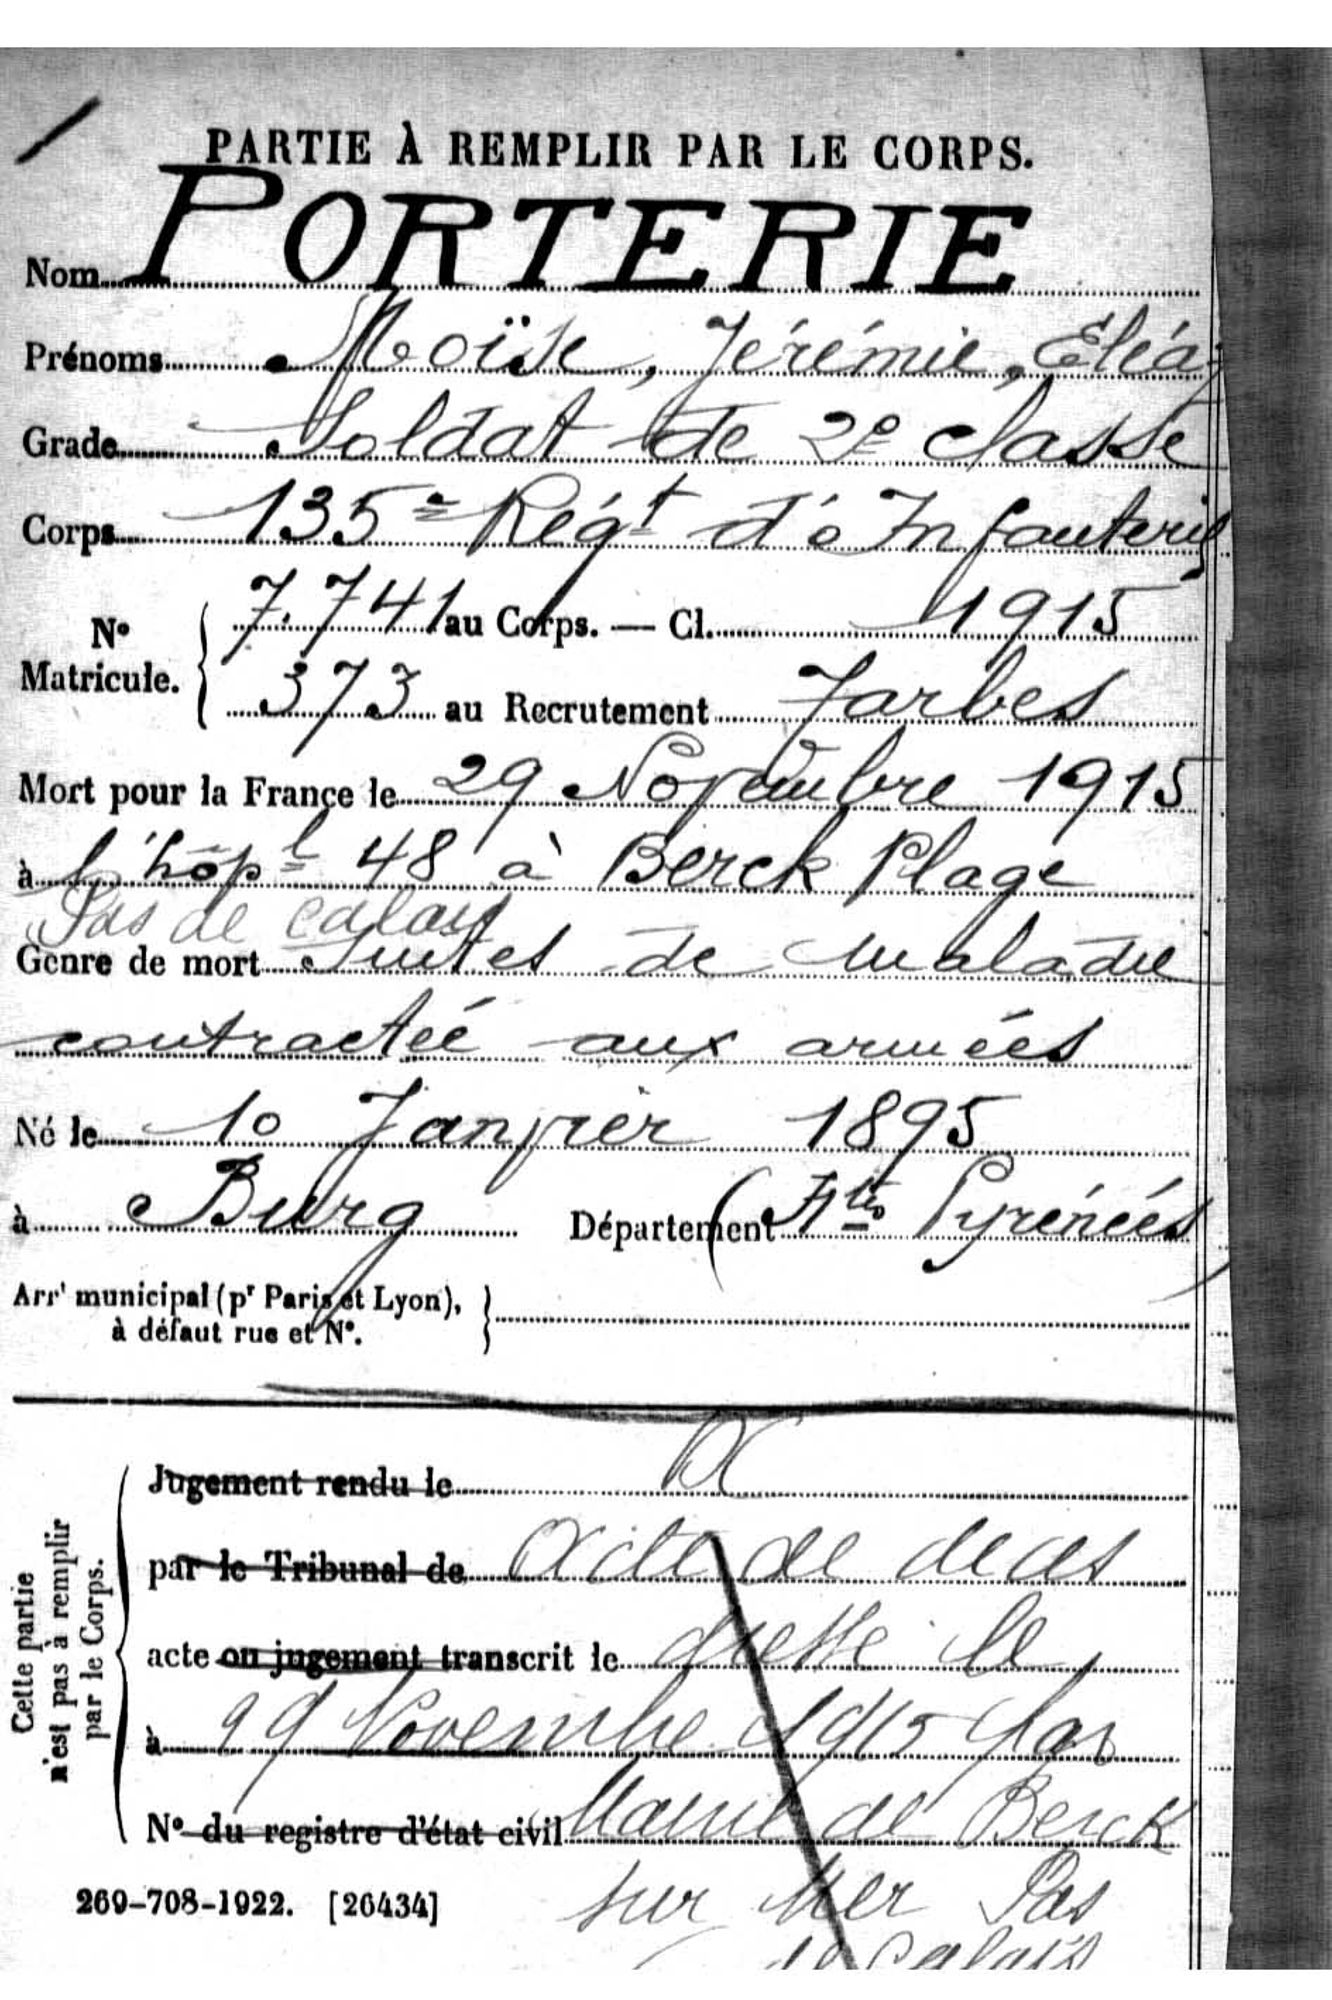 PARTIE À REMPLIR PAR LE CORPS.
Nom PORTERIE
Prénoms Moïse, Jérémie, Eléaz
Grade Soldat de 2e classe
Corps 135e Régt d'Infanterie
No Matricule. 7.741 au Corps. — Cl. 1915
373 au Recrutement Tarbes
Mort pour la France le 29 Novembre 1915
à l'hôpl 48 à Berck Plage
Pas de Calais
Genre de mort Suites de maladie
contractée aux armées
Né le 10 Janvier 1895
à Burg Département (Htes Pyrénées)
Arrt municipal (pr Paris et Lyon),
à défaut rue et No.
Cette partie
n'est pas à remplir
par le Corps.
Jugement rendu le
par le Tribunal de Acte de deces
acte ou jugement transcrit le dresse le
à 29 Novembre 1915 par
No du registre d'état civil Mairie de Berck
sur Mer Pas
de Calais
269-708-1922. [26434]